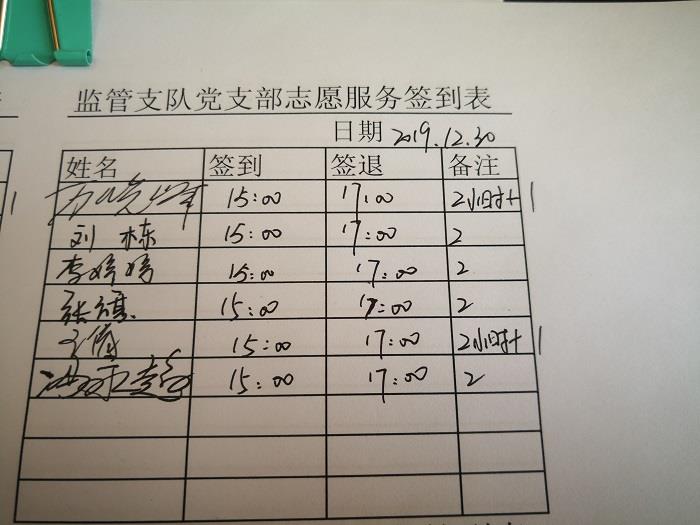 监管支队党支部志愿服务签到表
日期 2019.12.30
姓名 签到 签退 备注
15:00 17:00 2小时 1
刘栋 15:00 17:00 2
李婷婷 15:00 17:00 2
张 15:00 17:00 2
15:00 17:00 2小时 1
15:00 17:00 2